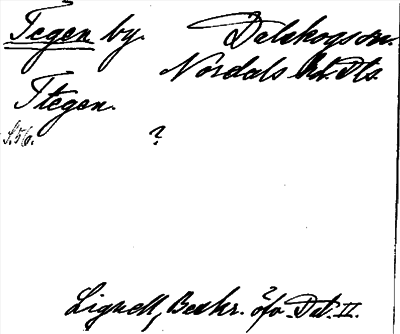 Tegen by. Dalskogs sn.
Nordals hd. Dls.
Ttegen.
s. 56. ?
Lignell, Beskr. öfv. Dal. II.